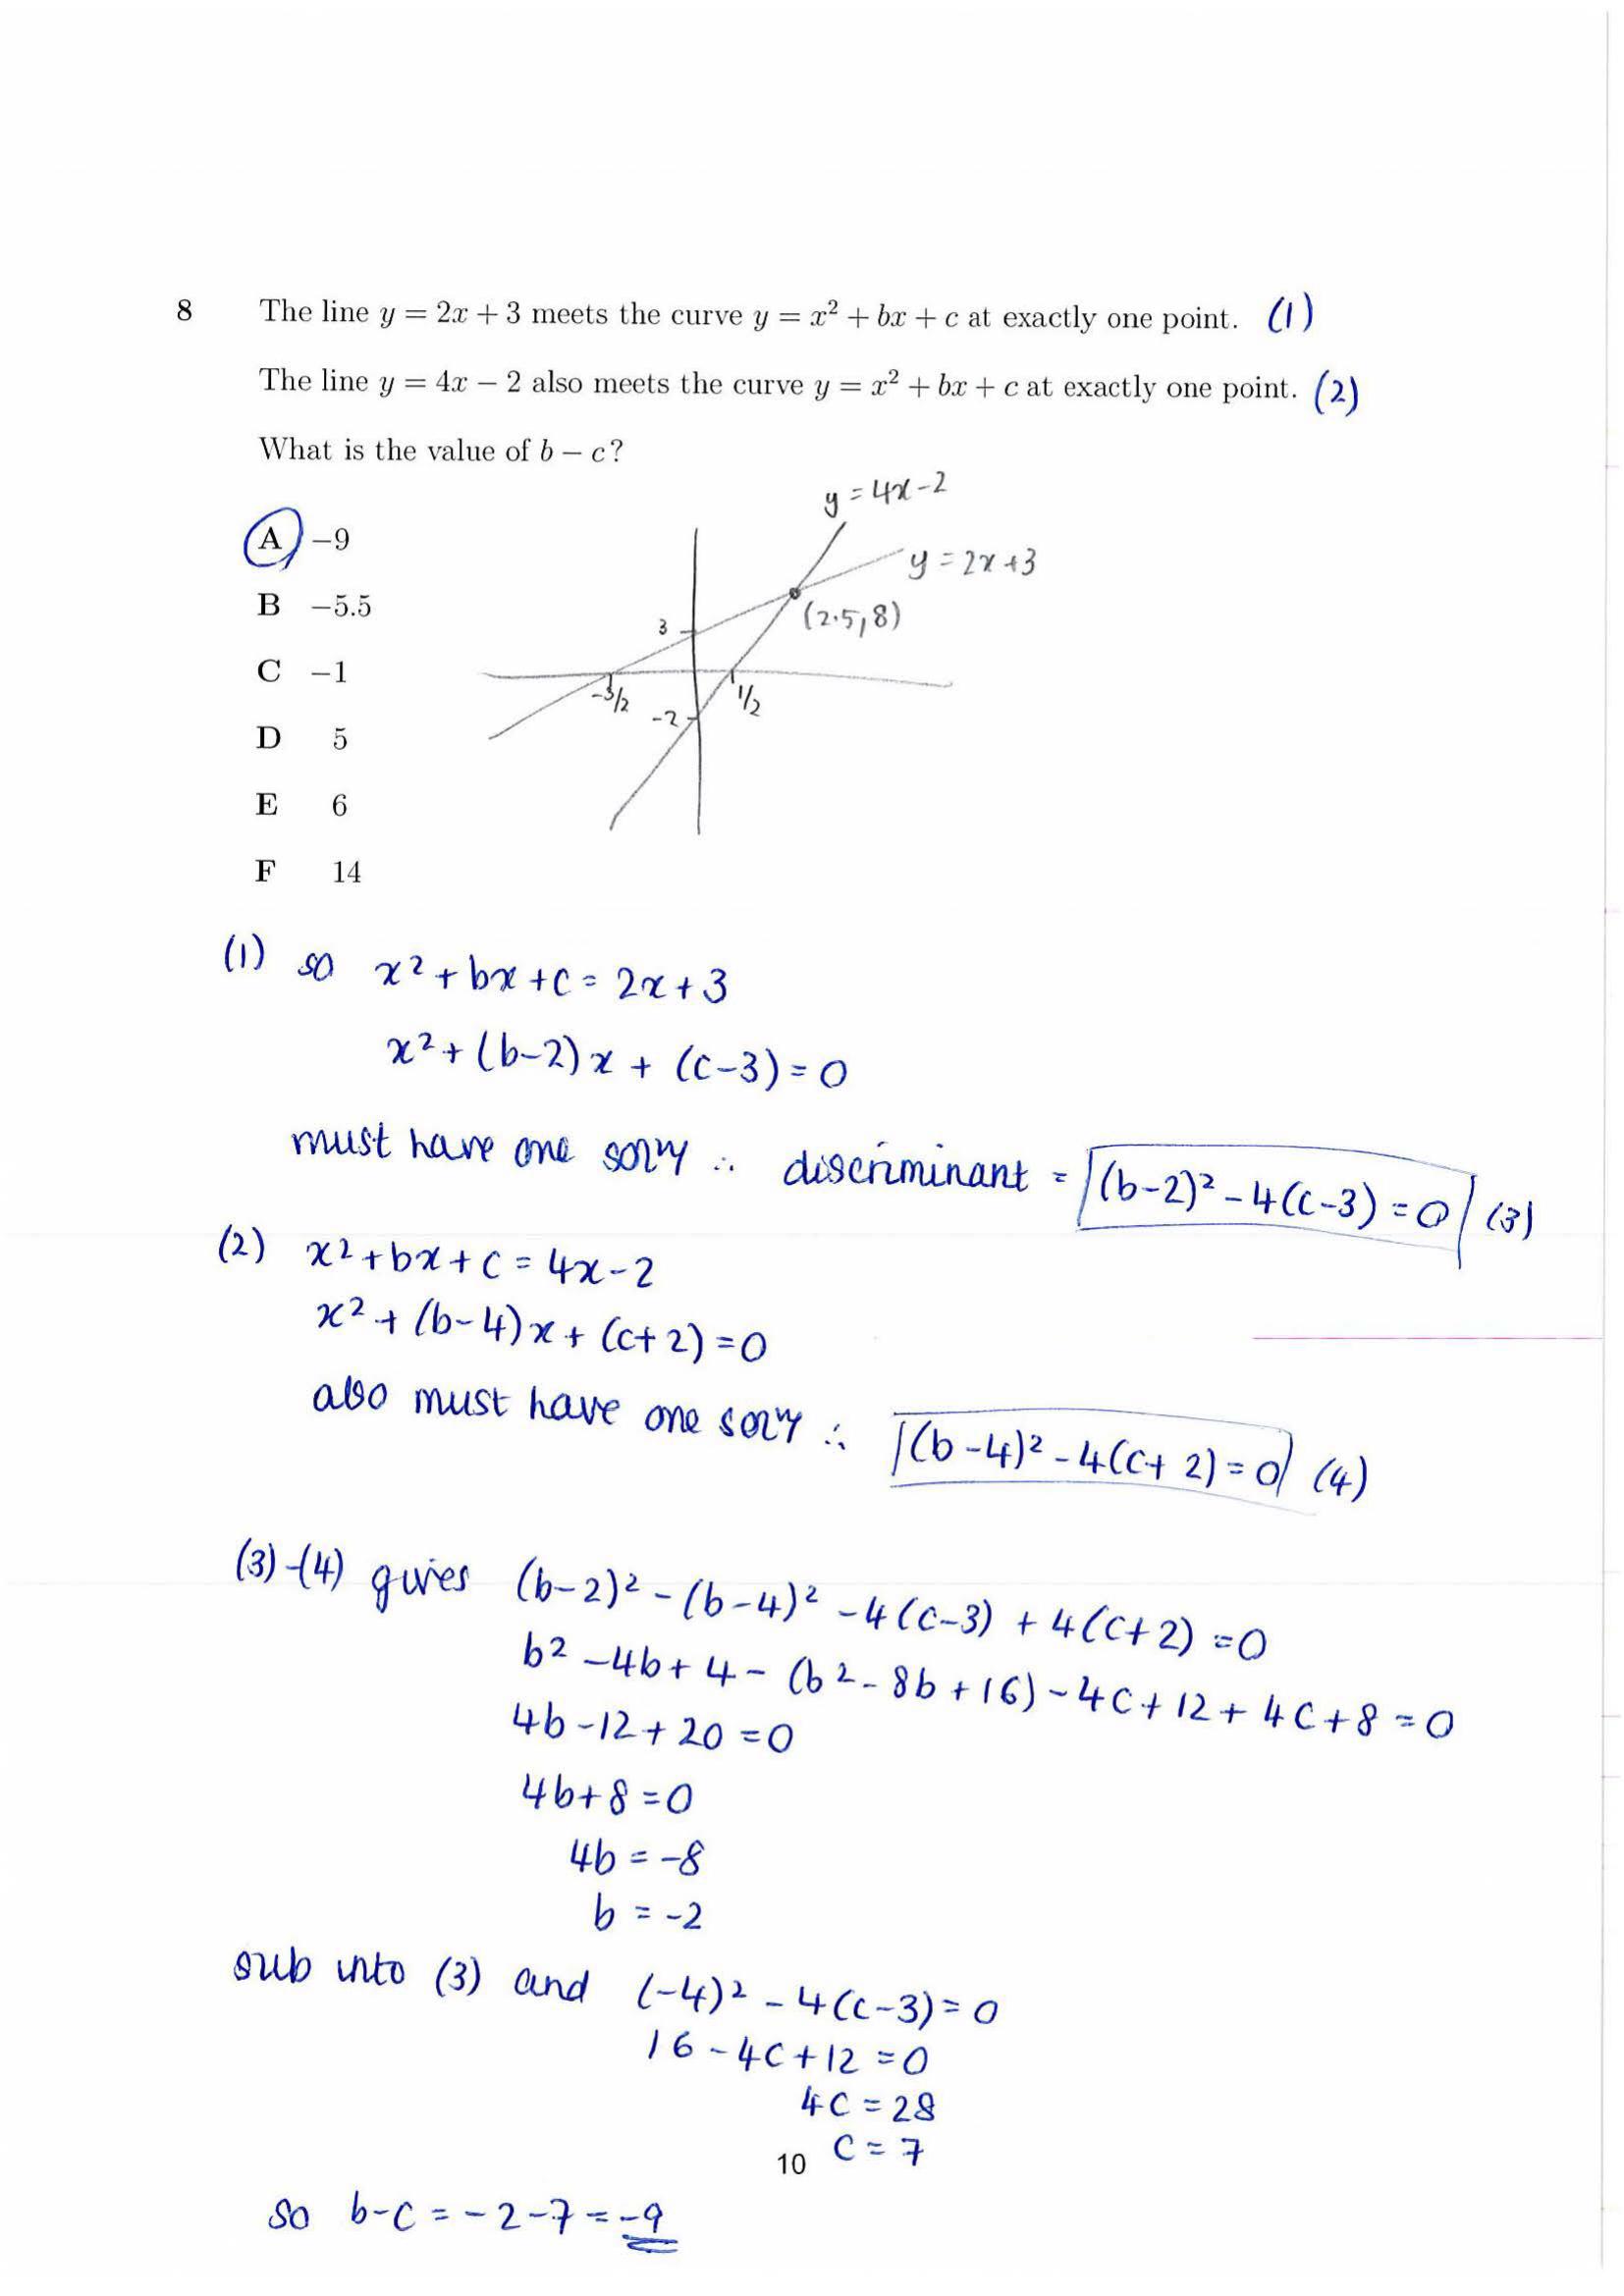 8 The line y = 2x + 3 meets the curve y = x² + bx + c at exactly one point. (1)
The line y = 4x − 2 also meets the curve y = x² + bx + c at exactly one point. (2)
What is the value of b − c?
y = 4x-2
A −9
y = 2x+3
B −5.5
(2.5,8)
3
C −1
-3/2
1/2
-2
D 5
E 6
F 14
(1) so x²+bx+c = 2x+3
x²+(b-2)x + (c-3)=0
must have one solⁿ ∴ discriminant = (b-2)²-4(c-3)=0 (3)
(2) x²+bx+c = 4x-2
x²+(b-4)x+(c+2)=0
also must have one solⁿ ∴ (b-4)²-4(c+2)=0 (4)
(3)-(4) gives (b-2)²-(b-4)²-4(c-3)+4(c+2)=0
b²-4b+4-(b²-8b+16)-4c+12+4c+8=0
4b-12+20=0
4b+8=0
4b=-8
b=-2
sub into (3) and (-4)²-4(c-3)=0
16-4c+12=0
4c=28
c=7
10
so b-c = -2-7 = -9